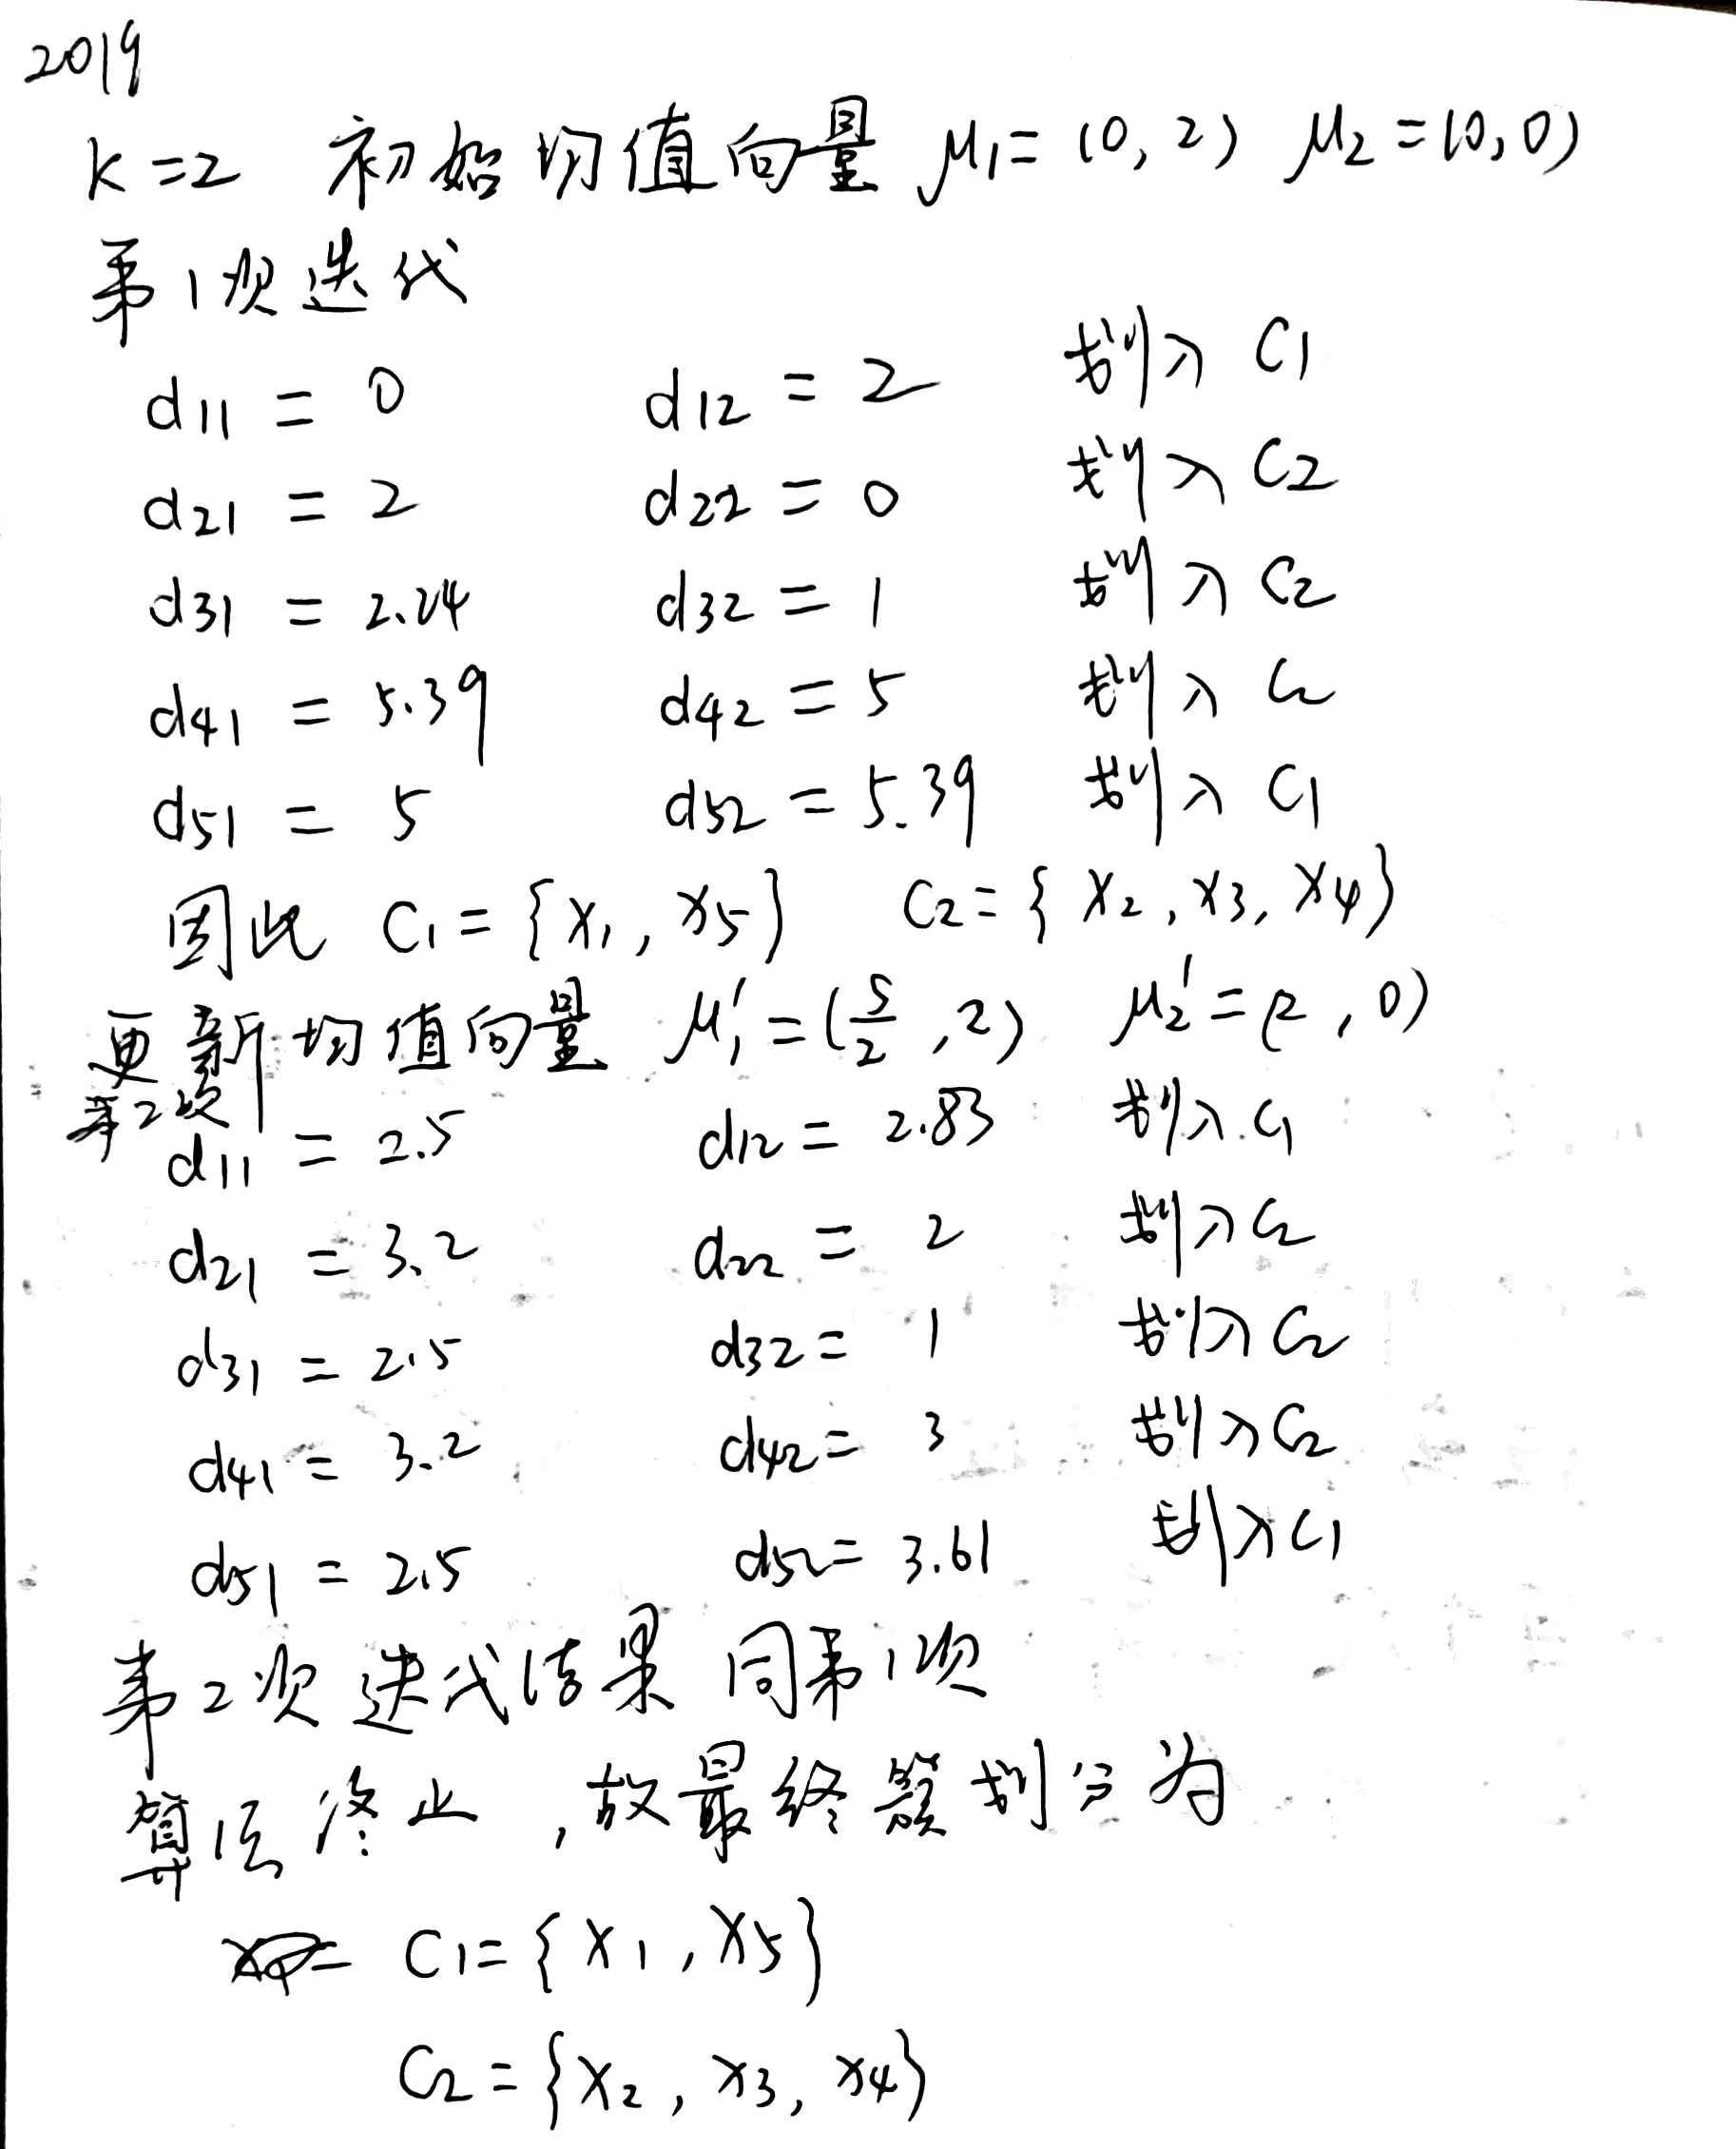 2019
K=2 初始均值向量 μ1=(0,2) μ2=(0,0)
第1次迭代
d11 = 0 d12 = 2 划入 C1
d21 = 2 d22 = 0 划入 C2
d31 = 2.24 d32 = 1 划入 C2
d41 = 5.39 d42 = 5 划入 C2
d51 = 5 d52 = 5.39 划入 C1
因此 C1={X1, X5} C2={X2, X3, X4}
更新均值向量 μ1'=(5/2, 2) μ2'=(2, 0)
第2次
d11 = 2.5 d12 = 2.83 划入C1
d21 = 3.2 d22 = 2 划入C2
d31 = 2.5 d32 = 1 划入C2
d41 = 3.2 d42 = 3 划入C2
d51 = 2.5 d52 = 3.61 划入C1
第2次迭代结果同第1次
算法终止,故最终簇划分为
C1={X1, X5}
C2={X2, X3, X4}